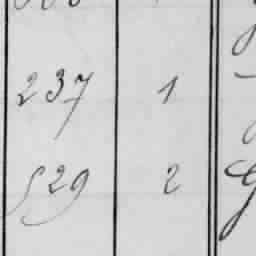 237 1
529 2